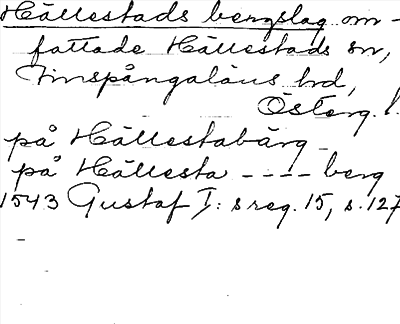 Hällestads bergslag om-
fattade Hällestads sn,
Finspångaläns hd,
Österg. l.
på Hällestabärg
på Hällesta ---- berg
1543 Gustaf I:s reg. 15, s. 127